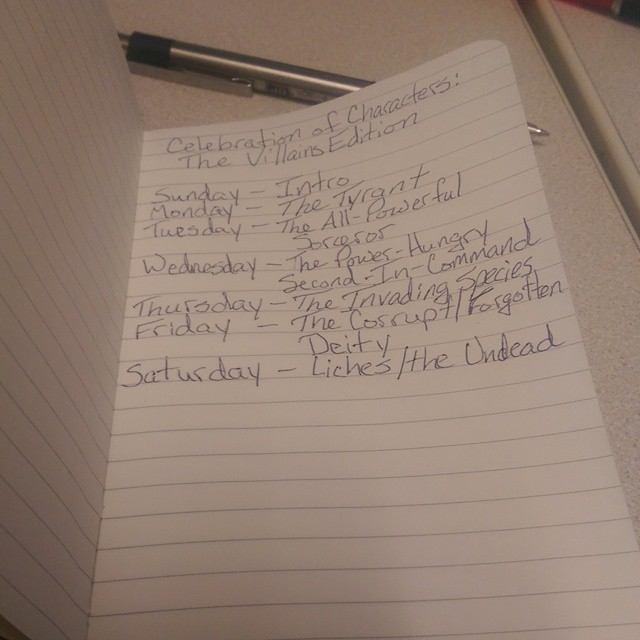 Celebration of Characters:
The Villains Edition
Sunday - Intro
Monday - The Tyrant
Tuesday - The All-Powerful
Sorceror
Wednesday - The Power-Hungry
Second-In-Command
Thursday - The Invading Species
Friday - The Corrupt/Forgotten
Deity
Saturday - Liches/the Undead